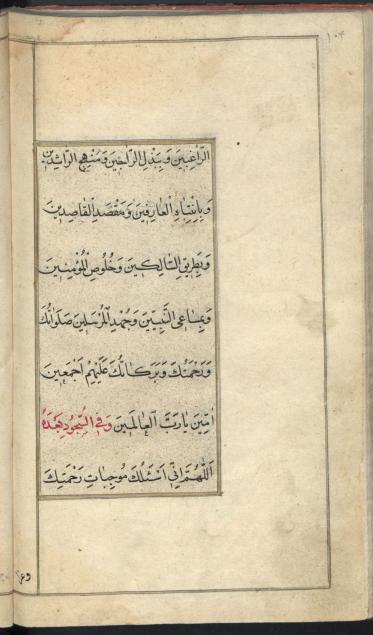 ١٠۴
الرَّاغِبِينَ وَبِبَذْلِ الرَّاجِينَ وَمَنْهَجِ الرَّاشِدِينَ
وَبِانْتِبَاهِ الْعَارِفِينَ وَمَقْصَدِ الْقَاصِدِينَ
وَبِطَرِيقِ السَّالِكِينَ وَخُلُوصِ الْمُؤْمِنِينَ
النَّبِيِّينَ الْمُرْسَلِينَ صَلَوَاتُكَ
وَرَحْمَتُكَ وَبَرَكَاتُكَ عَلَيْهِمْ أَجْمَعِينَ
اٰمِينَ يَا رَبَّ الْعَالَمِينَ وَفِي السُّجُودِ بِهٰذِهِ
اَللّٰهُمَّ اِنِّي اَسْئَلُكَ مُوجِبَاتِ رَحْمَتِكَ